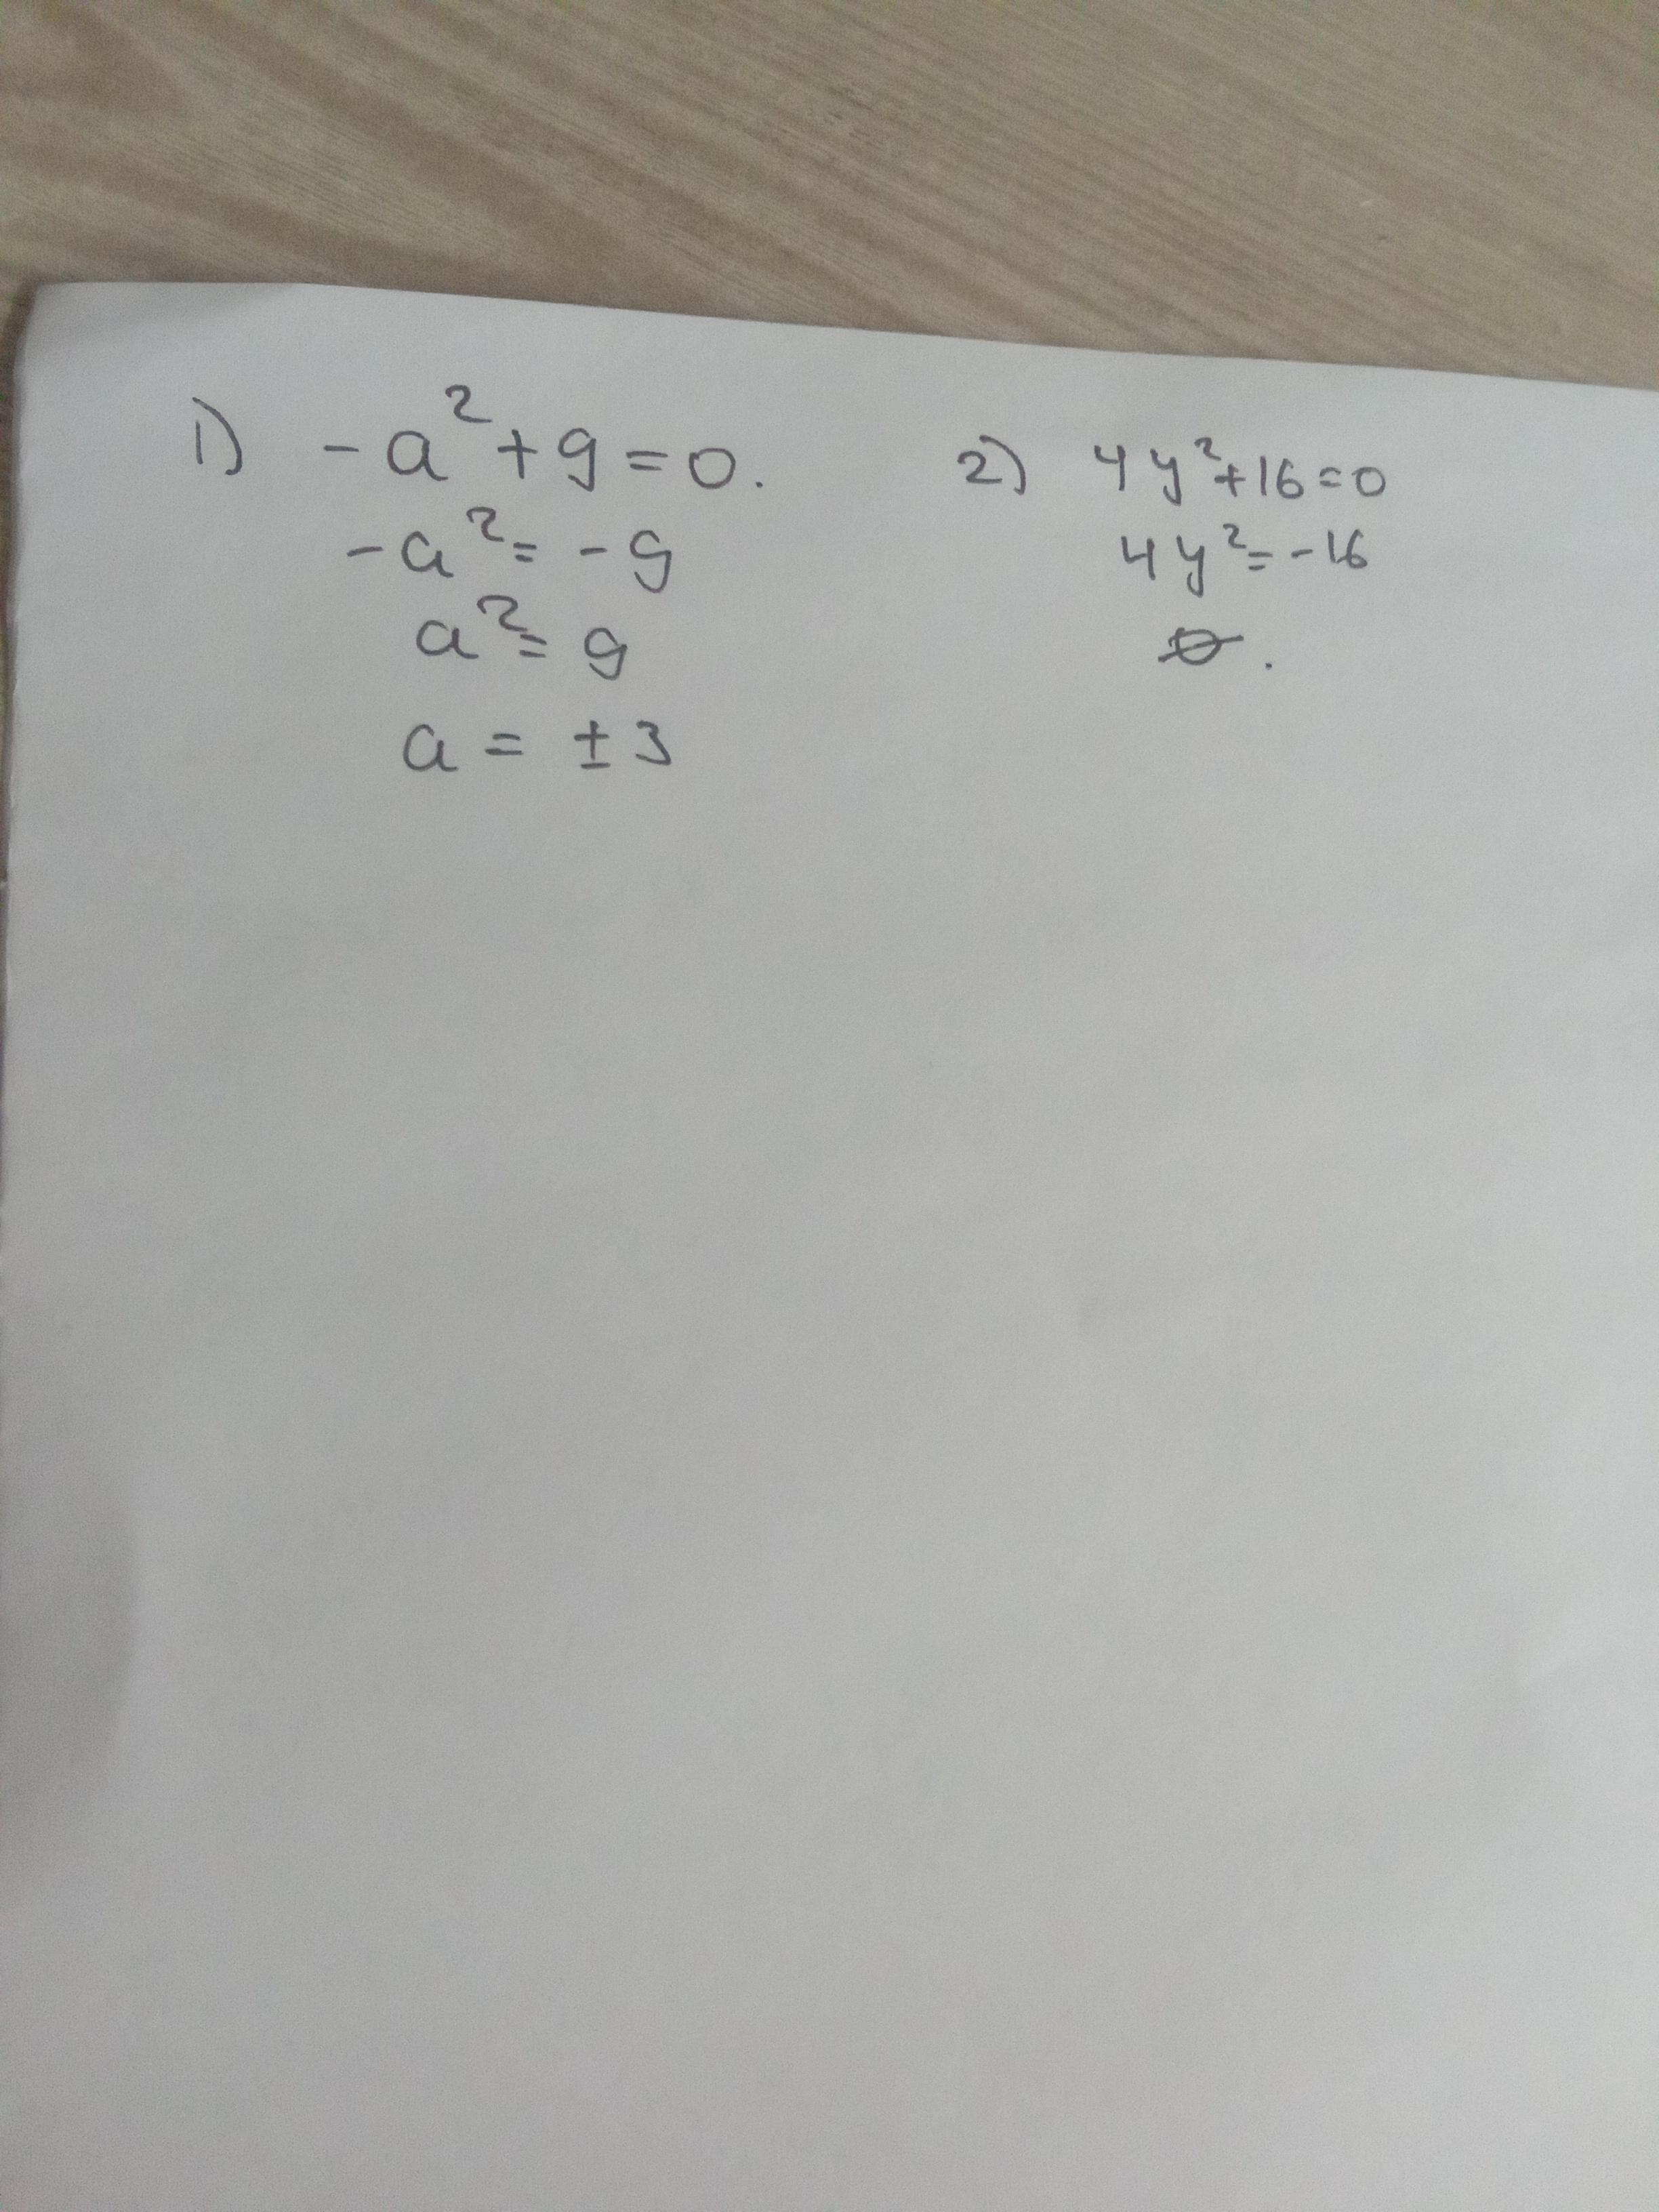 1) -a²+9=0.
-a²=-9
a²=9
a=±3
2) 4y²+16=0
4y²=-16
∅.